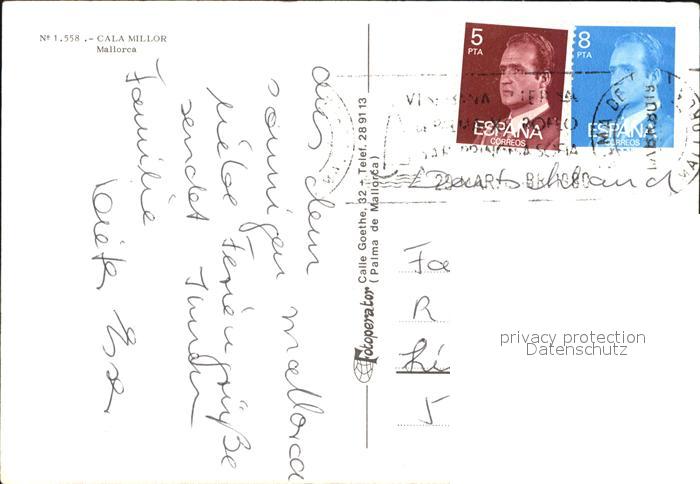 Nº 1.558 .- CALA MILLOR
Mallorca
aus dem
sonnigen Mallorca
liebe Feriengrüße
sendet Ihnen
Familie
Dieter
Fotoperator Calle Goethe, 32 - Telef. 28 91 13
(Palma de Mallorca)
5
PTA
ESPAÑA
CORREOS
8
PTA
ESPAÑA
CORREOS
Deutschland
Fa
R
Li
5
privacy protection
Datenschutz